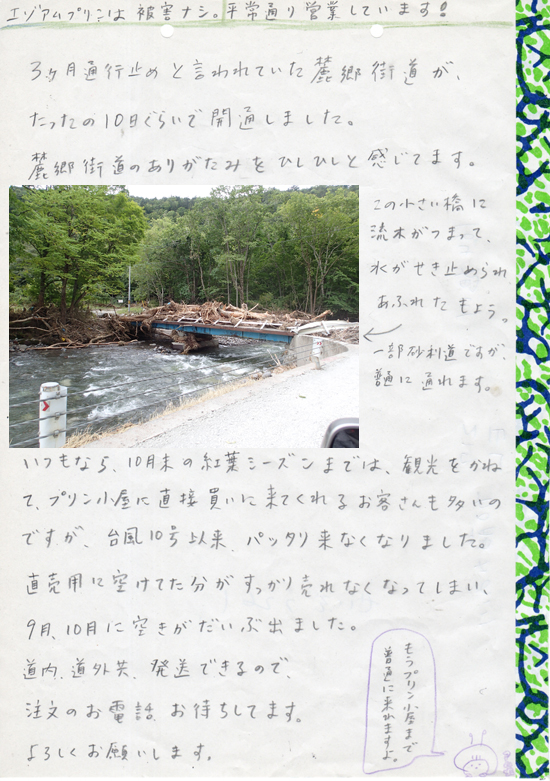 エゾアムプリンは被害ナシ。平常通り営業しています！
3ヶ月通行止めと言われていた麓郷街道が、
たったの10日ぐらいで開通しました。
麓郷街道のありがたみをひしひしと感じてます。
この小さい橋に
流木がつまって、
水がせき止められ
あふれたもよう。
一部砂利道ですが、
普通に通れます。
いつもなら、10月末の紅葉シーズンまでは、観光をかね
て、プリン小屋に直接買いに来てくれるお客さんも多いの
ですが、台風10号以来、パッタリ来なくなりました。
直売用に空けてた分がすっかり売れなくなってしまい、
9月、10月に空きがだいぶ出ました。
道内、道外共、発送できるので、
注文のお電話、お待ちしてます。
よろしくお願いします。
もうプリン小屋まで
普通に来れますよ。